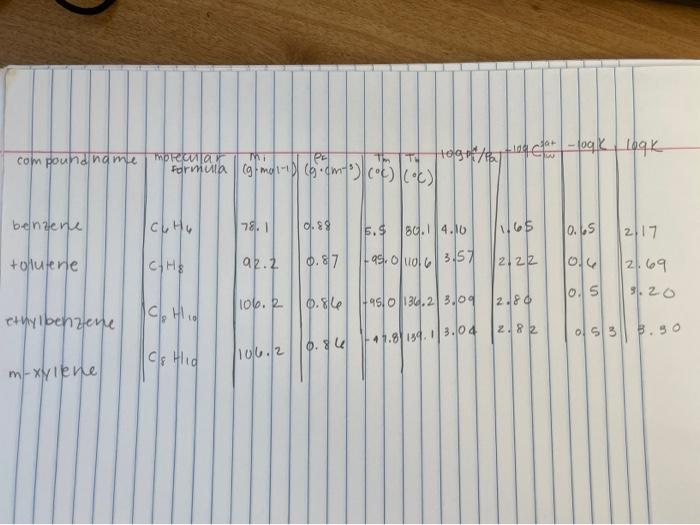 compound name molecular formula Mi (g·mol-1) (g·cm-3) Tm (°C) Tb (°C) -log K log K
benzene C6H6 78.1 0.88 5.5 80.1 4.10 1.65 0.65 2.17
toluene C7H8 92.2 0.87 -95.0 110.6 3.57 2.22 0.6 2.69
ethylbenzene C8H10 106.2 0.86 -95.0 136.2 3.09 2.80 0.5 3.20
m-xylene C8H10 106.2 0.86 -47.8 139.1 3.04 2.82 0.53 3.30